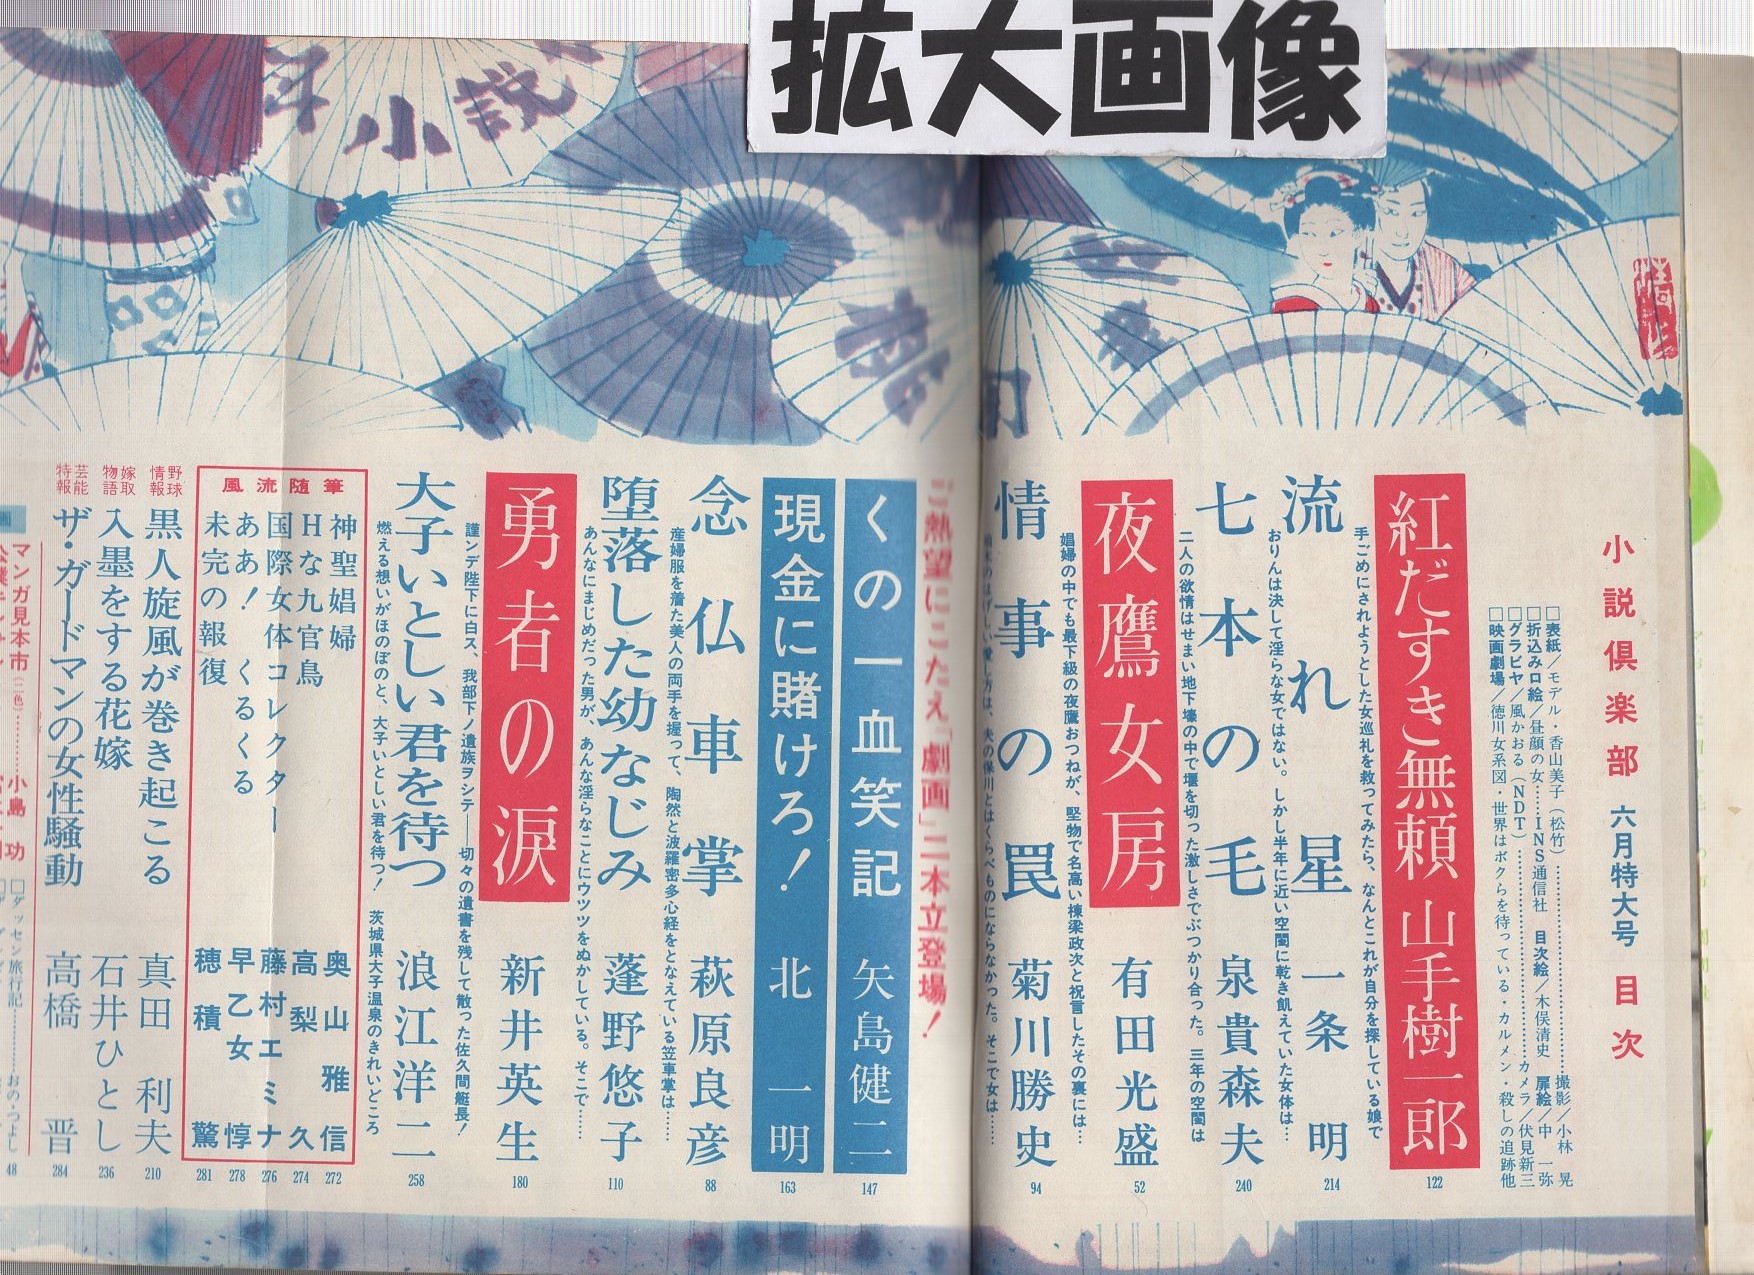 拡大画像
小説
小説倶楽部 六月特大号 目次
□表紙／モデル・香山美子（松竹）……撮影／小林 晃
□折込みロ絵／昼顔の女……INS通信社 目次絵／木俣清史 扉絵／中 一弥
□グラビヤ／風かおる（NDT）……カメラ／伏見新三
□映画劇場／徳川女系図・世界はボクらを待っている・カルメン・殺しの追跡他
紅だすき無頼 山手樹一郎 122
手ごめにされようとした女巡礼を救ってみたら、なんとこれが自分を探している娘で
流れ星 一条明 214
おりんは決して淫らな女ではない。しかし半年に近い空閨に乾き飢えていた女体は…
七本の毛 泉貴森夫 240
二人の欲情はせまい地下壕の中で堰を切った激しさでぶつかり合った。三年の空閨は
夜鷹女房 有田光盛 52
娼婦の中でも最下級の夜鷹おつねが、堅物で名高い棟梁政次と祝言したその裏には…
情事の罠 菊川勝史 94
のはげしい愛し方は、夫の保川とはくらべものにならなかった。そこで女は……
ご熱望にこたえ「劇画」二本立登場！
くの一血笑記 矢島健二 147
現金に賭けろ！ 北 一明 163
念仏車掌 萩原良彦 88
産婦服を着た美人の両手を握って、陶然と波羅密多心経をとなえている笠車掌は…
堕落した幼なじみ 蓬野悠子 110
あんなにまじめだった男が、あんな淫らなことにウツツをぬかしている。そこで……
勇者の涙 新井英生 180
謹ンデ陛下に白ス、我部下ノ遺族ヲシテ――切々の遺書を残して散った佐久間艇長！
大子いとしい君を待つ 浪江洋二 258
燃える想いがほのぼのと、大子いとしい君を待つ！ 茨城県大子温泉のきれいどころ
風流随筆
神聖娼婦 奥山雅信 272
Hな九官鳥 高梨 久 274
国際女体コレクター 藤村エミナ 276
ああ！ くるくる 早乙女 惇 278
未完の報復 穂積 驚 281
野球情報 黒人旋風が巻き起こる 真田利夫 210
嫁取物語 入墨をする花嫁 石井ひとし 236
芸能特報 ザ・ガードマンの女性騒動 高橋 晋 284
マンガ見本市（二色）……小島 功
□ダッセン旅行記……おの・つよし 48